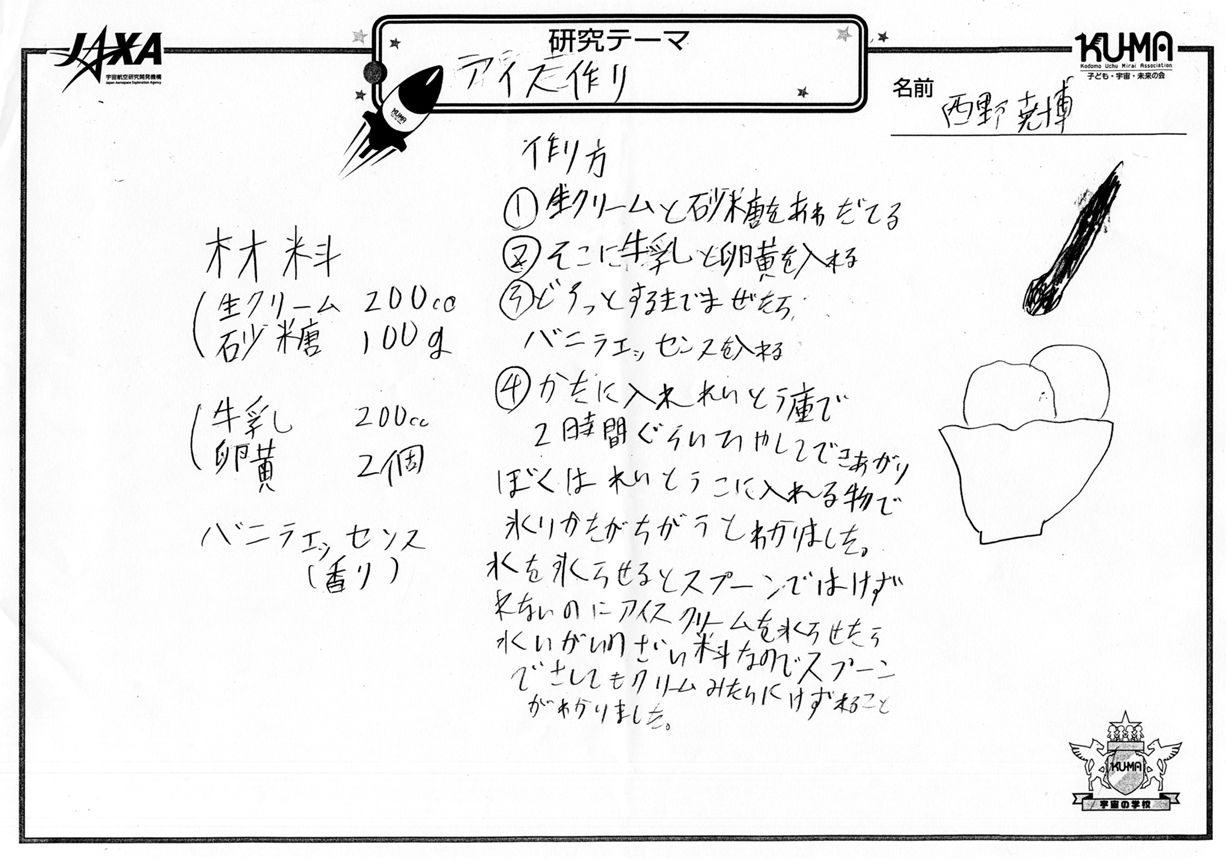 JAXA
宇宙航空研究開発機構
Japan Aerospace Exploration Agency
研究テーマ
アイス作り
KUMA
KU-MA
Kodomo Uchu Mirai Association
子ども・宇宙・未来の会
名前
西野 尭博
材料
生クリーム 200cc
砂糖 100g
牛乳し 200cc
卵黄 2個
バニラエッセンス
(香り)
作り方
① 生クリームと砂糖をあわだてる
② そこに牛乳しと卵黄を入れる
③ どろっとするまでまぜたら
バニラエッセンスを入れる
④ かたに入れれいとう庫で
2時間ぐらいひやしてできあがり
ぼくはれいとうこに入れる物で
氷りかたがちがうとわかりました。
水を氷らせるとスプーンではけず
れないのにアイスクリームを氷らせたら
水いがいのざい料なのでスプーン
でさしてもクリームみたいにけずれること
がわかりました。
KU-MA
宇宙の学校